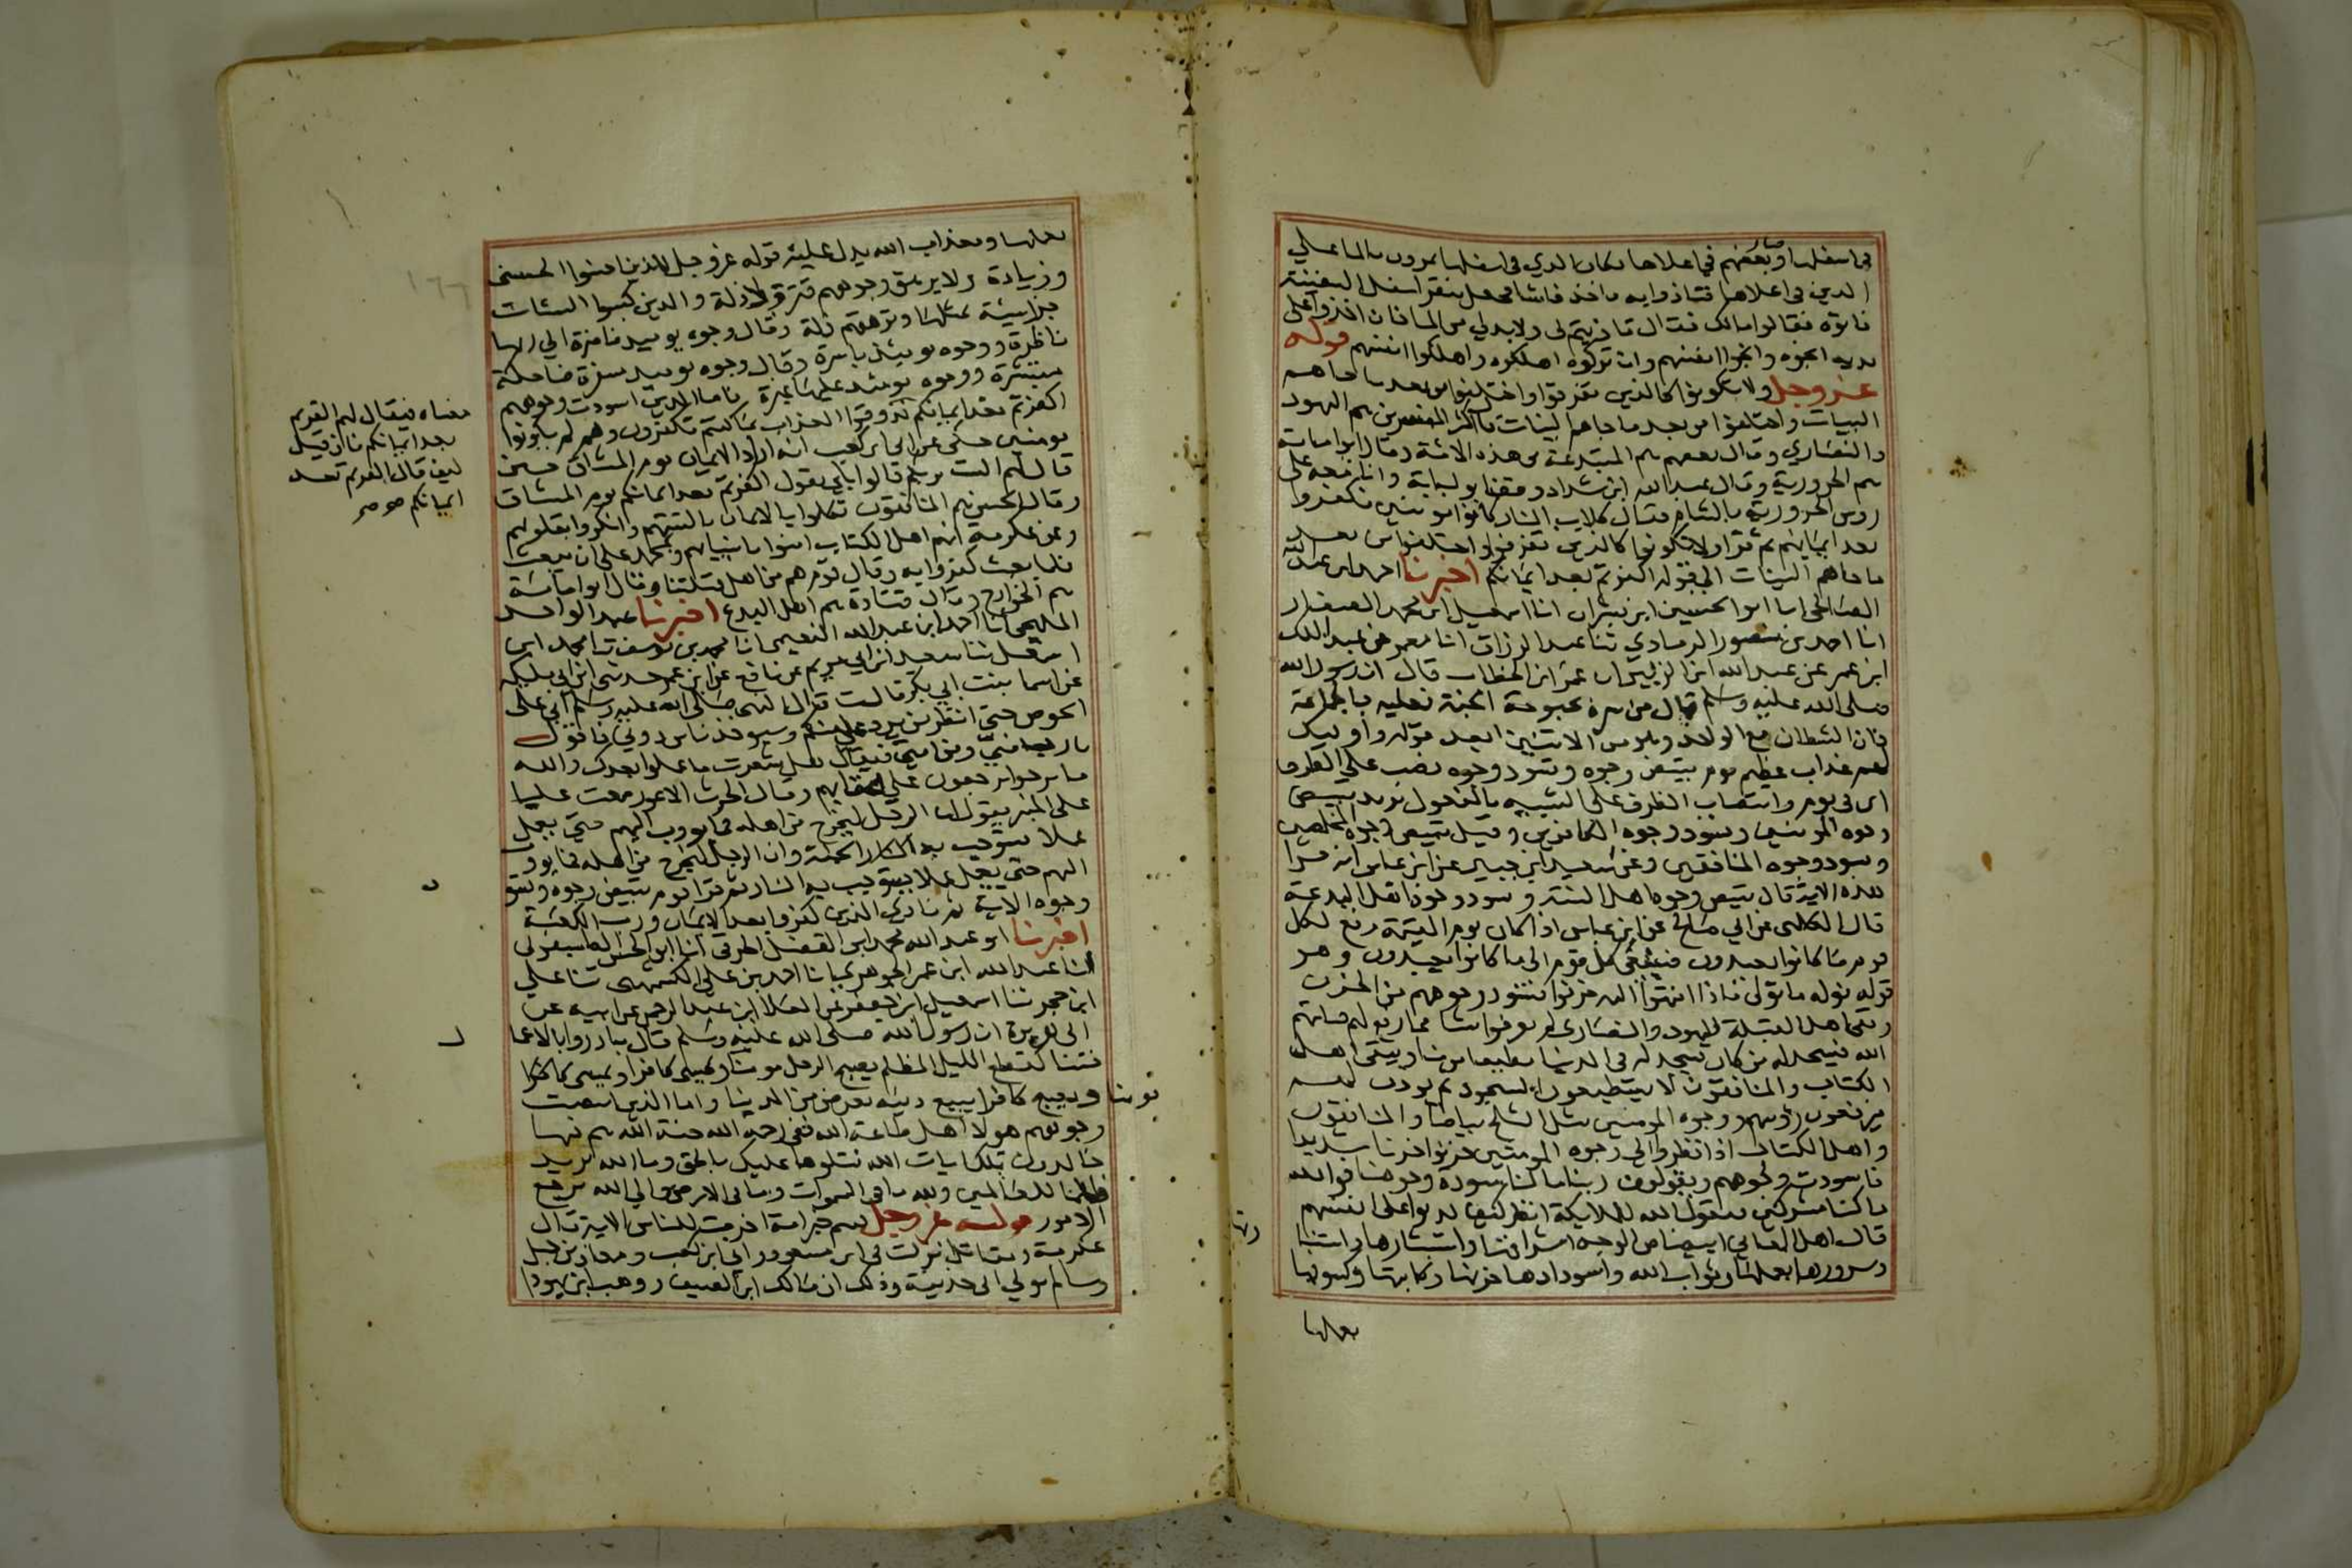 في اسفلها وصار بعضهم في اعلاها فكان الذي في اسفلها يمرون بالما علي
الذين في اعلاها فتاذوا به فاخذ فاسا فجعل ينقر اسفل السفينة
فاتوه فقالوا مالك فقال تاذيتم بي ولا بد لي من الما فان اخذوا علي
يديه انجوه وانجوا انفسهم وان تركوه اهلكوه واهلكوا انفسهم قوله
عز وجل ولا تكونوا كالذين تفرقوا واختلفوا من بعد ما جاهم
البينات واختلفوا من بعد ما جاهم البينات قال اكثر المفسرين هم اليهود
والنصاري وقال بعضهم هم المبتدعة من هذه الامة وقال ابو امامة
هم الحرورية وقال عبد الله ابن شداد وقف ابو امامة وانا معه علي
روس الحرورية بالشام فقال كلاب النار كانوا مومنين فكفروا
بعد ايمانهم ثم قرا ولا تكونوا كالذين تفرقوا واختلفوا من بعد
ما جاهم البينات الي قوله اكفرتم بعد ايمانكم اخبرنا احمد ابن عبد الله
الصالحي انا ابو الحسين ابن بشران انا اسمعيل ابن محمد الصفار
انا احمد بن منصور الرمادي ثنا عبد الرزاق انا معمر عن عبد الملك
ابن عمر عن عبد الله ابن الزبير ان عمر ابن الخطاب قال ان رسول الله
صلي الله عليه وسلم قال من سره بحبوحة الجنة فعليه بالجماعة
فان الشيطان مع الواحد وهو من الاثنين ابعد قوله واوليك
لهم عذاب عظيم يوم تبيض وجوه وتسود وجوه نصب علي الظرف
اي في يوم وانتصاب الظرف علي التشبيه بالمفعول يريد تبيض
وجوه المومنين وتسود وجوه الكافرين وقيل تبيض وجوه المخلصين
وتسود وجوه المنافقين وعن سعيد ابن جبير عن ابن عباس انه قرا
هذه الاية قال تبيض وجوه اهل السنة وتسود وجوه اهل البدعة
قال الكلبي عن ابي صالح عن ابن عباس اذا كان يوم القيمة رفع لكل
قوم ما كانوا يعبدون فيسعي كل قوم الي ما كانوا يعبدون وهو
قوله نوله ما تولي فاذا انتهوا اليه حزنوا فتسود وجوههم من الحزن
وبقي اهل القبلة واليهود والنصاري لم يعرفوا شيا مما رفع لهم فياتيهم
الله فيسجد له من كان يسجد له في الدنيا مطيعا مومنا ويبقي اهل
الكتاب والمنافقون لا يستطيعون السجود ثم يوذن لهم
فيرفعون روسهم ووجوه المومنين مثل الثلج بياضا والمنافقون
واهل الكتاب اذا نظروا الي وجوه المومنين حزنوا حزنا شديدا
فاسودت وجوههم ويقولون ربنا مالنا مسودة وجوهنا فوالله
ما كنا مشركين فيقول الله للملايكة انظر كيف كذبوا علي انفسهم
قال اهل المعاني ابيضاض الوجه اشراقها واستبشارها
وسرورها بعملها وثواب الله واسودادها حزنها وكابتها وكسوفها
بعملها
بعملها وبعذاب الله يدل عليه قوله عز وجل للذين احسنوا الحسني
وزيادة ولا يرهق وجوههم قتر ولا ذلة والذين كسبوا السيات
جزا سيئة بمثلها وترهقهم ذلة وقال وجوه يوميذ ناضرة الي ربها
ناظرة ووجوه يوميئذ باسرة وقال وجوه يوميذ مسفرة ضاحكة
مستبشرة ووجوه يومئذ عليها غبرة فاما الذين اسودت وجوههم
اكفرتم بعد ايمانكم فذوقوا العذاب بما كنتم تكفرون وهم لم يكونوا
مومنين حكي عن ابي ابن كعب انه اراد الايمان يوم الميثاق حين
قال لهم الست بربكم قالوا بلي يقول اكفرتم بعد ايمانكم يوم الميثاق
وقال الحسن هم المنافقون تكلموا بالايمان بالسنتهم وانكروا بقلوبهم
وعن عكرمة انهم اهل الكتاب امنوا بانبيائهم وبمحمد علي ان يبعث
فلما بعث كفروا به وقال قوم هم من اهل قبلتنا وقال ابو امامة
هم الخوارج وقال قتادة هم اهل البدع اخبرنا عبد الواحد
المليحي انا احمد ابن عبد الله النعيمي انا محمد بن يوسف ثنا محمد ابن
اسمعيل ثنا سعيد ابن ابي مريم عن نافع عن ابن عمر حدثني ابن ابي مليكه
عن اسما بنت ابي بكر قالت قال النبي صلي الله عليه وسلم اني علي
الحوض حتي انظر من يرد علي منكم وسيوخذ ناس دوني فاقول
يا رب مني ومن امتي فيقال هل شعرت ما عملوا بعدك والله
ما برحوا يرجعون علي اعقابهم وقال الحرث الاعور سمعت عليا
علي المنبر يقول ان الرجل ليخرج من اهله فما يووب اليهم حتي يعمل
عملا يستوجب به الجنة وان الرجل ليخرج من اهله فما يوود
اليهم حتي يعمل عملا يستوجب به النار ثم قرا يوم تبيض وجوه وتسود
وجوه الاية ثم نادي الذين كفروا بعد الايمان ورب الكعبة
اخبرنا ابو عبد الله محمد ابن الفضل الخرقي انا ابو الحسن الطيسفوني
انا عبد الله ابن عمر الجوهري انا احمد بن علي الكشميهني ثنا علي
ابن حجر ثنا اسمعيل ابن جعفر عن العلا ابن عبد الرحمن عن ابيه عن
ابي هريرة ان رسول الله صلي الله عليه وسلم قال بادروا بالاعما
فتنا كقطع الليل المظلم يصبح الرجل مومنا ويمسي كافرا ويمسي
ويصبح كافرا يبيع دينه بعرض من الدنيا واما الذين ابيضت
وجوههم هولا اهل طاعة الله ففي رحمة الله جنة الله هم فيها
خالدون تلك ايات الله نتلوها عليك بالحق وما الله يريد
ظلما للعالمين ولله ما في السموات وما في الارض والي الله ترجع
الامور قوله عز وجل كنتم خير امة اخرجت للناس الاية قال
عكرمة ومقاتل نزلت في ابن مسعود وابي ابن كعب ومعاذ بن جبل
وسالم مولي ابي حذيفة وذلك ان مالك ابن الضيف ووهب ابن يهودا
معناه فيقال لهم اكفرتم
بعد ايمانكم فان قيل
كيف قال اكفرتم بعد
ايمانكم
مومنا
١٦٦